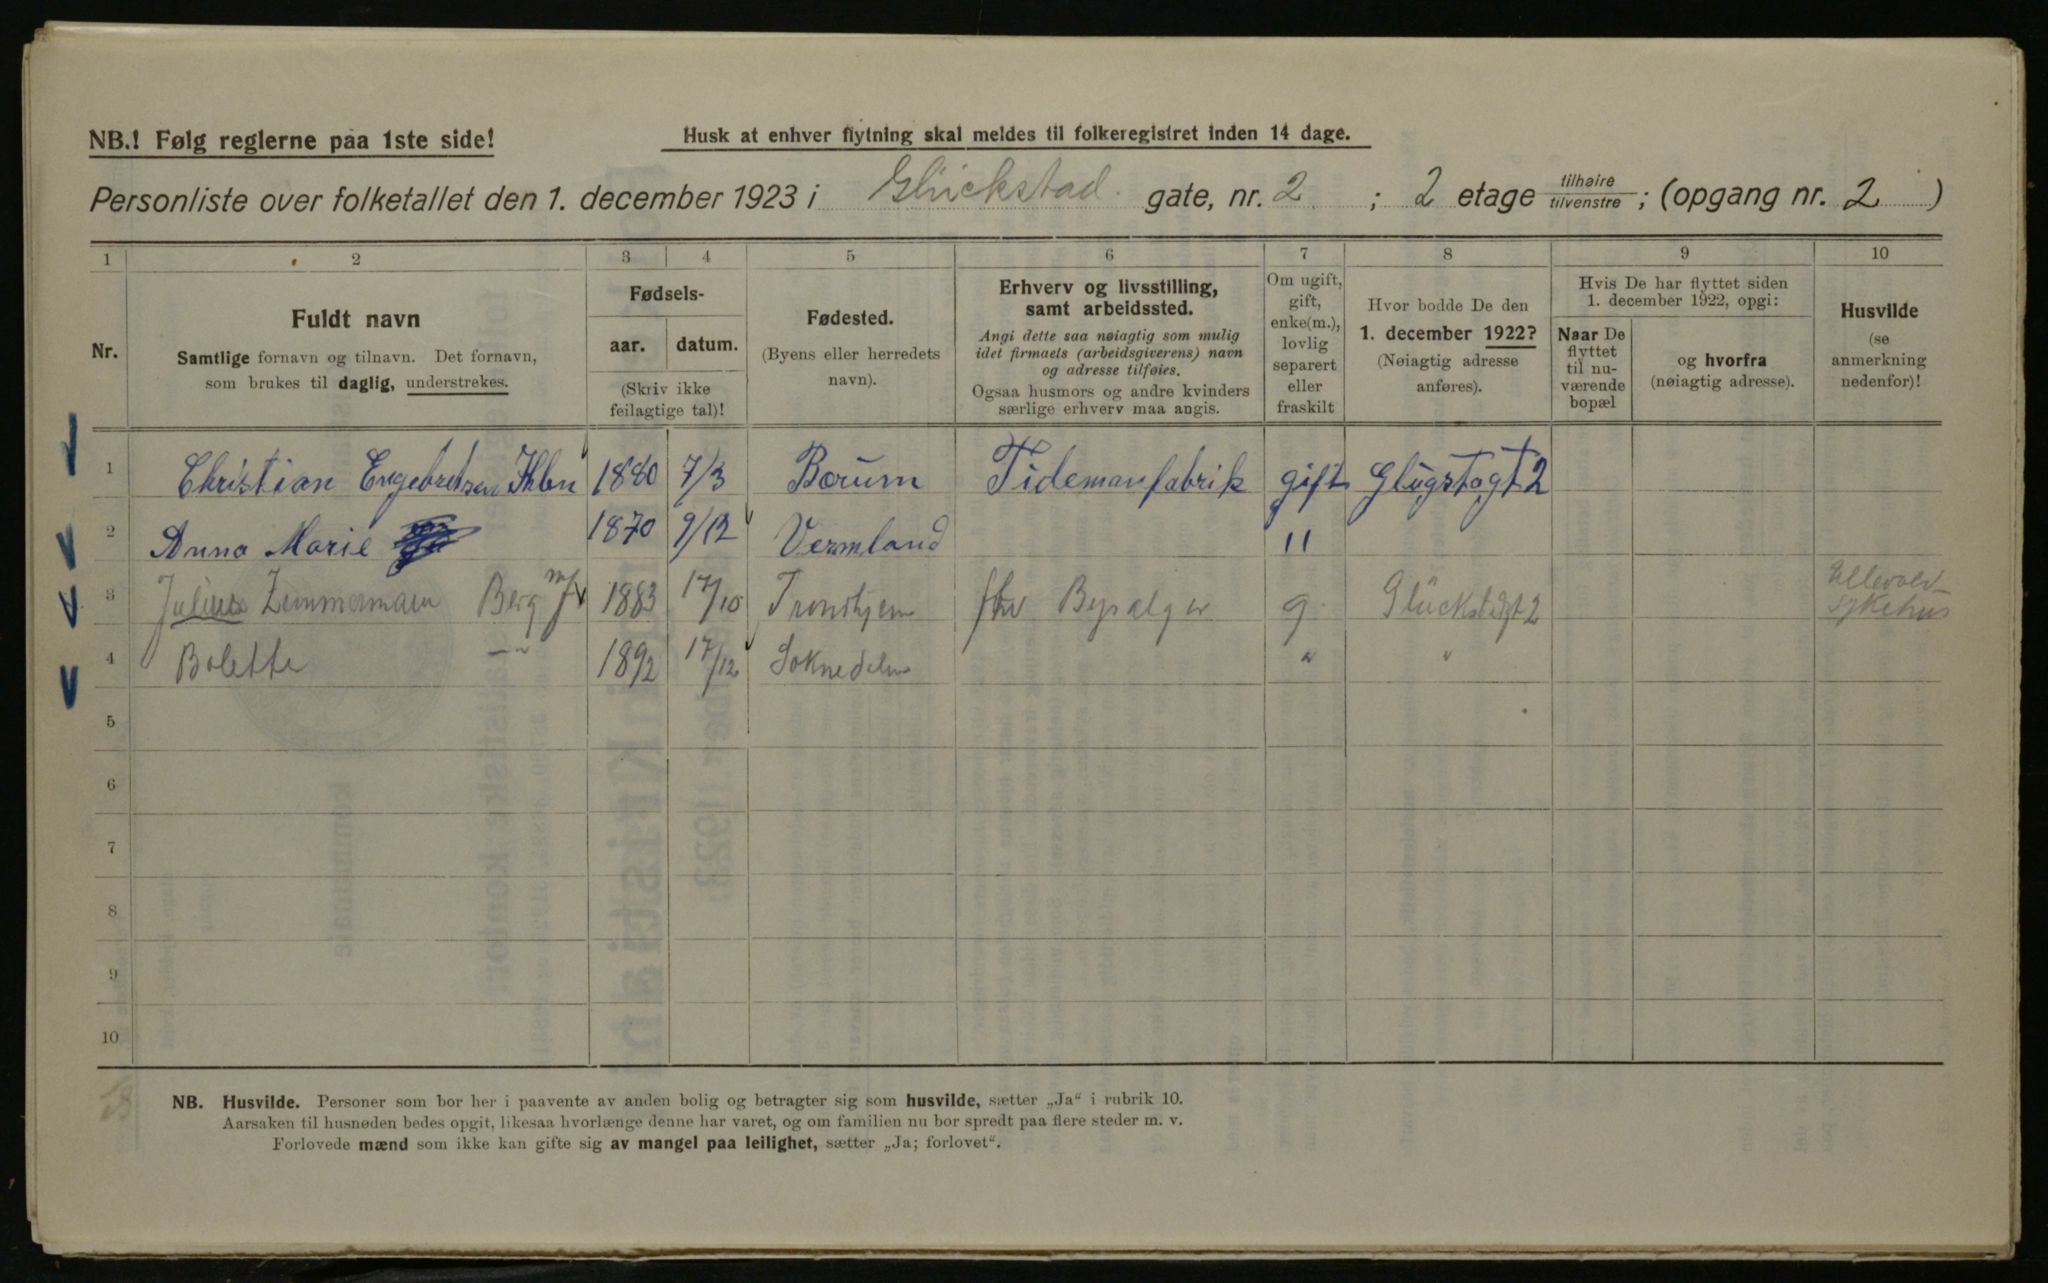 NB.! Følg reglerne paa 1ste side!
Husk at enhver flytning skal meldes til folkeregistret inden 14 dage.
Personliste over folketallet den 1. december 1923 i Glückstad gate, nr. 2 ; 2 etage tilhøire tilvenstre ; (opgang nr. 2 )
1 2 3 4 5 6 7 8 9 10
Nr.
Fuldt navn
Samtlige fornavn og tilnavn. Det fornavn,
som brukes til daglig, understrekes.
Fødsels-
aar. datum.
(Skriv ikke
feilagtige tal)!
Fødested.
(Byens eller herredets
navn).
Erhverv og livsstilling,
samt arbeidssted.
Angi dette saa nøiagtig som mulig
idet firmaets (arbeidsgiverens) navn
og adresse tilføies.
Ogsaa husmors og andre kvinders
særlige erhverv maa angis.
Om ugift,
gift,
enke(m.),
lovlig
separert
eller
fraskilt
Hvor bodde De den
1. december 1922?
(Nøiagtig adresse
anføres).
Hvis De har flyttet siden
1. december 1922, opgi:
Naar De
flyttet
til nu-
værende
bopæl
og hvorfra
(nøiagtig adresse).
Husvilde
(se
anmerkning
nedenfor)!
1 Christian Engebretsen 1880 7/3 Bærum Tidemanfabrik gift Glugstagt 2
2 Anna Marie 1870 9/12 Vermland "
3 Julius Zimmermann Berg 1883 17/10 Trondhjem g Glückstadgt 2 Sykehus
4 Bolette -"- 1892 17/12 Soknedalen " "
5
6
7
8
9
10
NB. Husvilde. Personer som bor her i paavente av anden bolig og betragter sig som husvilde, sætter „Ja“ i rubrik 10.
Aarsaken til husnøden bedes opgit, likesaa hvorlænge denne har varet, og om familien nu bor spredt paa flere steder m. v.
Forlovede mænd som ikke kan gifte sig av mangel paa leilighet, sætter „Ja; forlovet“.